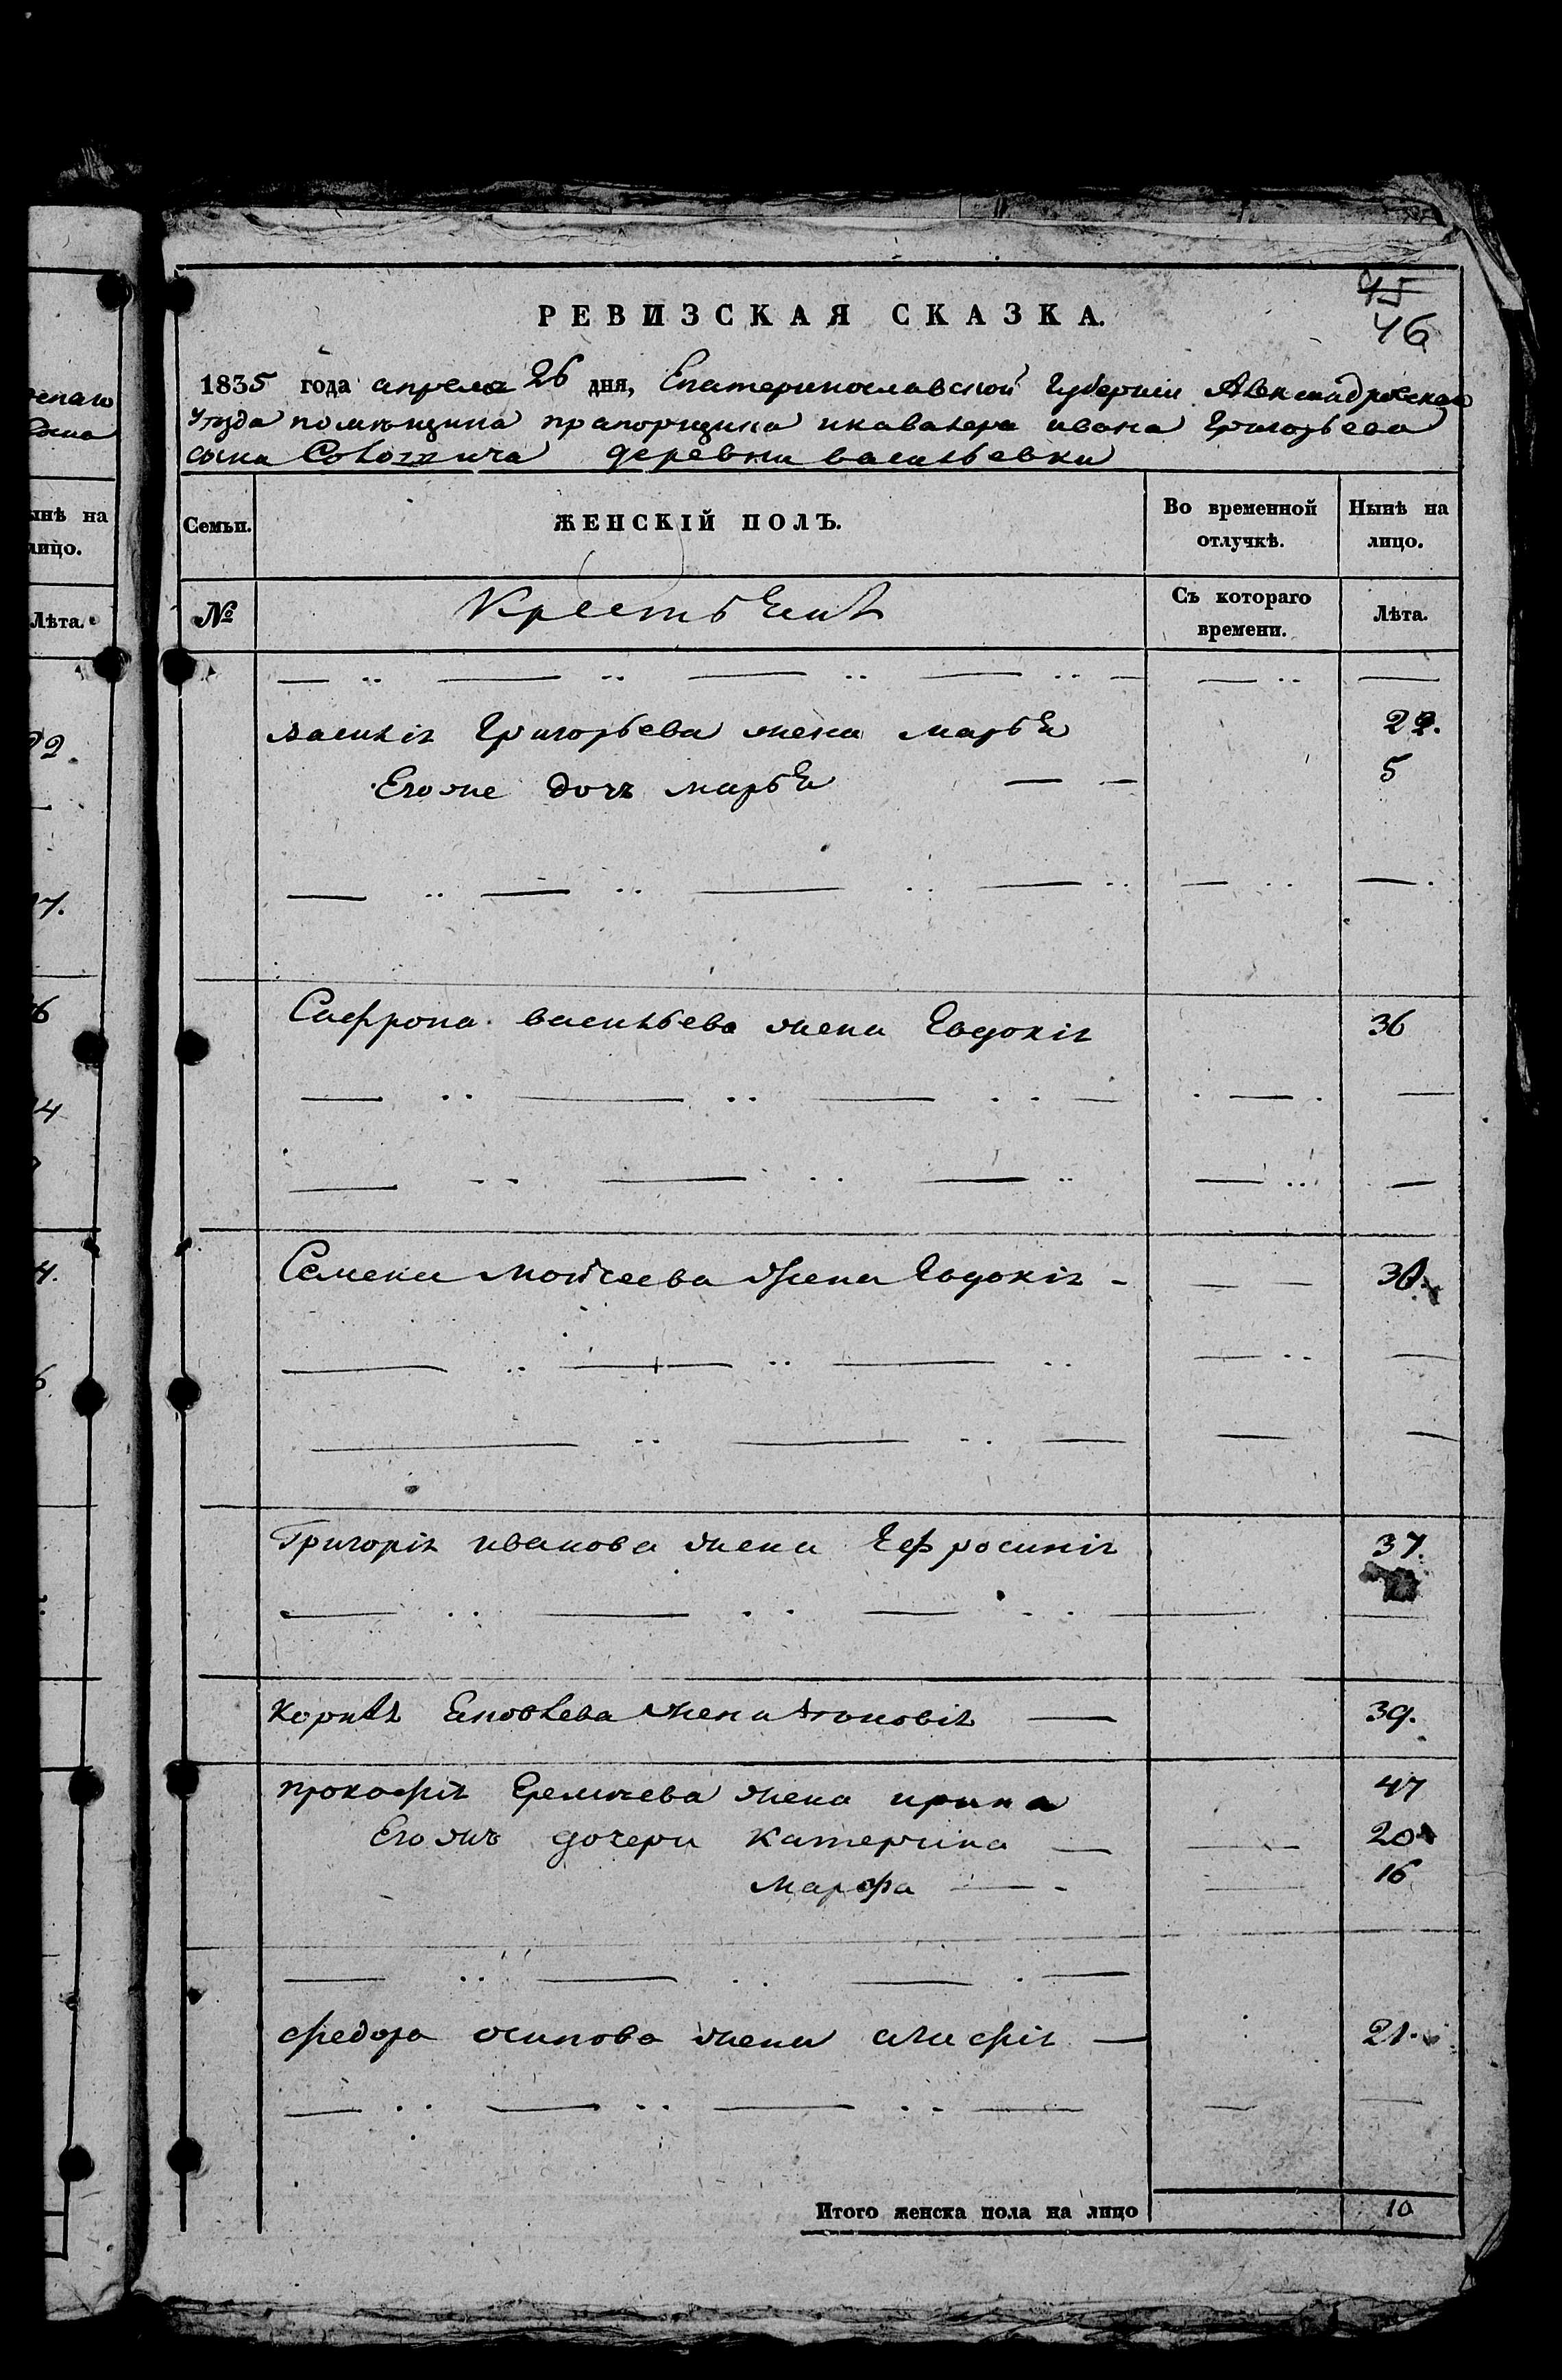 45
46
РЕВИЗСКАЯ СКАЗКА.
1835 года апреля 26 дня, Екатеринославской Губернии Александровскаго
уезда помѣщика прапорщика икавалера ивана Григорьева
сына деревни васильевки
Семьи.
ЖЕНСКІЙ ПОЛЪ.
Во временной отлучкѣ.
Нынѣ на лицо.
№
Съ котораго времени.
Лѣта.
василія Григорьева жена марья 22.
Егоже дочь марья 5
Сафрона васильева жена Евдокія 36
Семена моисеева жена Евдокія
Григорія иванова жена Ефросинія 37.
жена 39.
прокофія Еремичева жена ирина 47
Егожъ дочери катерина 20
марфа 16
федора осипова жена агафія 21.
Итого женска пола на лицо 10
ынѣ на
лицо.
Лѣта.